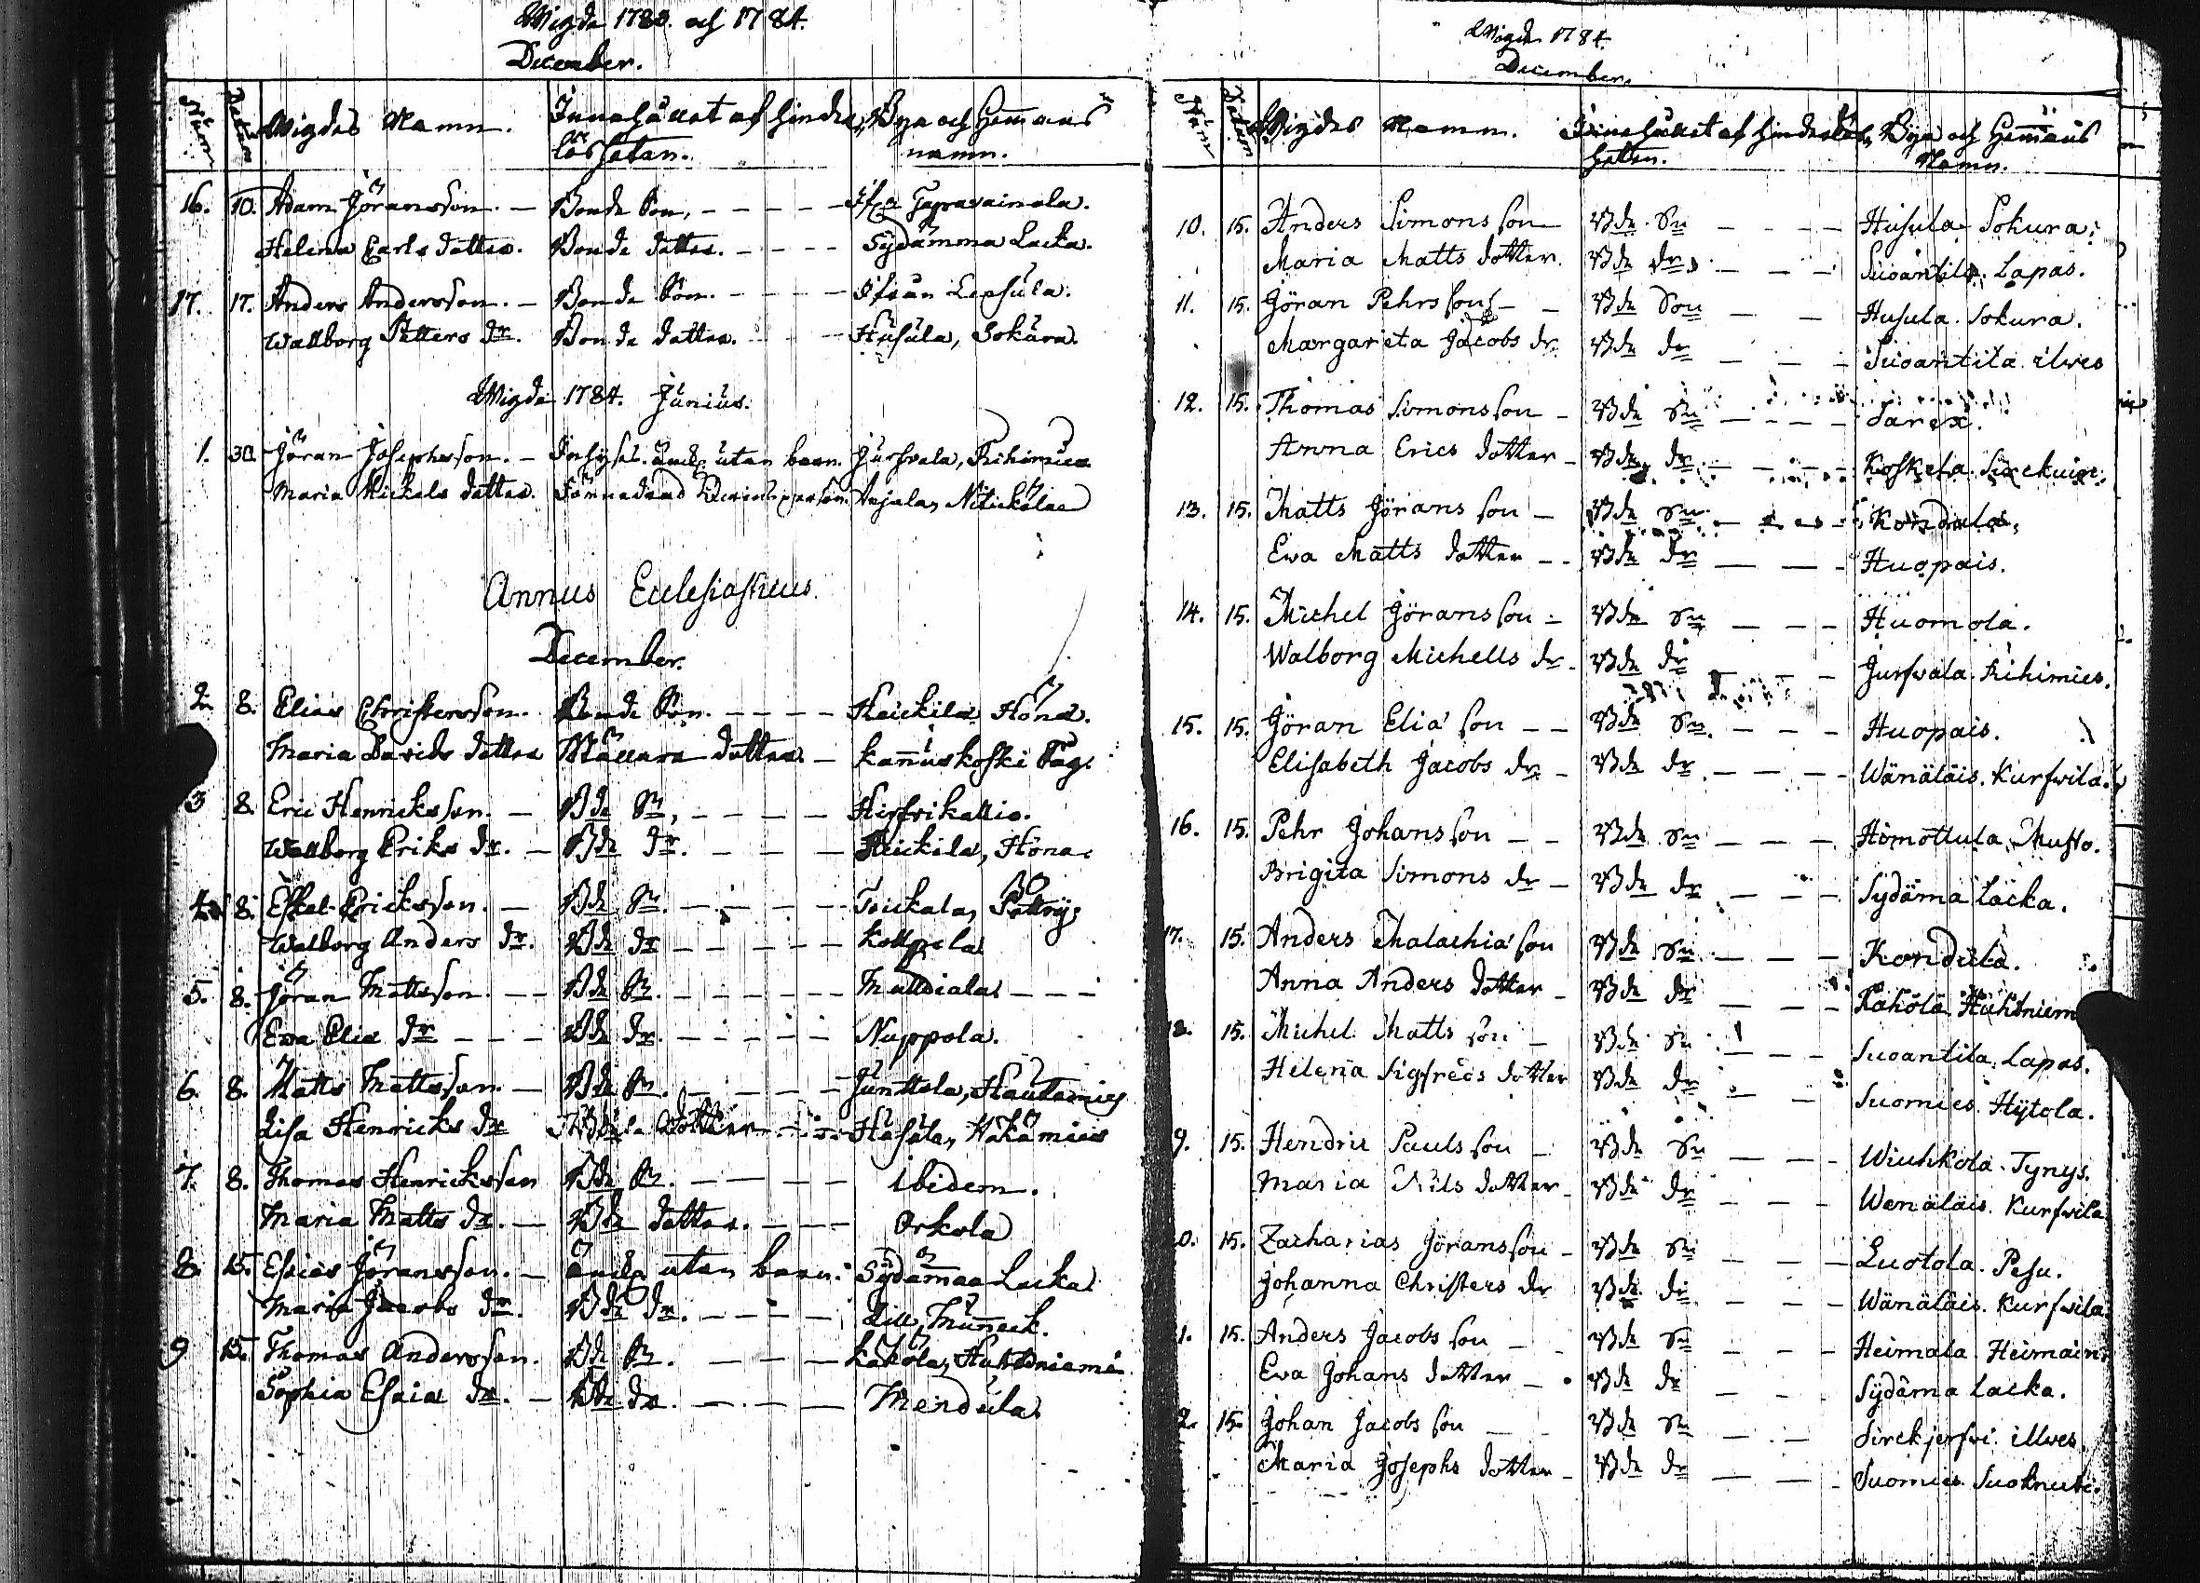 Wigde 1783. och 1784.
December.
Num Datum Wigdes Namn. Innehållet af hinders Bya och Hemans
lösheten. namn.
16. 10. Adam Jöransson. — Bonde Son, - - - -
Helena Carls dotter. Bonde dotter. - - - - Sydämma Lacka.
17. 17. Anders Andersson. — Bonde Son. - - - -
Wallborg Petters dr. Bonde dotter. - - - Husula, Sokura.
Wigde 1784. Junius.
1. 30. Jöran Josephsson. — utan barn. Jurfvala, Rihimies
Maria Michels dotter. Anjala,
Annus Eclesiasticus.
December.
2. 8. Elias Christersson. Bonde Son. - - - - Heickila, Höna.
Maria Davids dotter dotter. — Kannuskoski
3 8. Eric Henricksson. — Bde Sn, - - - - Hirfvikallio.
Wallborg Eriks dr. — Bde dr. - - - - Heickila, Höna.
4. 8. Eskel Ericksson. — Bde Sn. - - - - Toickala,
Walborg Anders dr. Bde dr - - - - Kollpela
5. 8. Jöran Mattsson. — Bde Sn. - - - - - - -
Ewa Elia dr - - - Bde dr. - - - - Nuppola.
6. 8. Matts Mattsson. — Bde Sn. - - - - Junttola, Hautamies
Lisa Henricks dr dotter - - - Husula,
7. 8. Thomas Henricksson Bde Sn. - - - - ibidem.
Maria Matts dr. — Bde dotter. - - - Orkola
8. 15. Esaias Jöransson. — utan barn. Sydämaa Lacka
Maria Jacobs dr. Bde dr. - - - -
9 15. Thomas Andersson. Bde Sn. - - - Kakola, Huhtniemi
Sophia Esaia dr. — Bde dr. - - - Mendula.
Wigde 1784.
December.
Num Datum Wigdes Namn. Innehållet af hinderslös Bya och Hemans
heten. Namn.
10. 15. Anders Simonsson Bde Sn - - - - Husula Sokura.
Maria Matts dotter. Bde dr, - - - Suoantila. Lapas.
11. 15. Jöran Pehrsson - - Bde Son - - Husula. Sokura.
Margareta Jacobs dr Bde dr - - - Suoantila. ilwes
12. 15. Thomas Simonsson - Bde Sn - - - - Sarex.
Anna Erics dotter - Bde dr - - - - Koskela.
13. 15. Matts Jörans son - Bde Sn - - - - Kondula.
Ewa Matts dotter - - Bde dr - - - Huopais.
14. 15. Michel Jöransson - Bde Sn - - - Huomola.
Walborg Michells dr. Bde dr - - Jurfvala. Rihimies.
15. 15. Jöran Elia son - - Bde Sn. - - - Huopais.
Elisabeth Jacobs dr - Bde dr - - - - Wänäläis. Kurfvila.
16. 15. Pehr Johansson - - Bde Sn - - - Hömöttula. Musto.
Brigita Simons dr - Bde dr - - - Sydäma Lacka.
17. 15. Anders Malachia son Bde Sn - - - Kondula.
Anna Anders dotter - Bde dr - - - Kakola. Huhtniem
15. Michel Matts son - Bde Sn - - - Suoantila. Lapas.
Helena Sigfreds dotter Bde dr - - - Suomies. Hytola.
9. 15. Hendric Pauls son - Bde Sn - - - Wiuhkola. Tynys.
Maria Nils dotter - Bde dr - - - Wenäläis. Kurfvila
0. 15. Zacharias Jöransson - Bde Sn - - - Luotola. Pesu.
Johanna Christers dr Bde dr - - - Wänäläis. Kurfvila
1. 15. Anders Jacobs son - - Bde Sn - - - Heimala.
Eva Johans dotter - - Bde dr - - - Sydäma Lacka.
2. 15. Johan Jacobs son - - Bde Sn - - - Sirckjerfvi. illwes.
Maria Josephs dotter - Bde dr - - - Suomies.